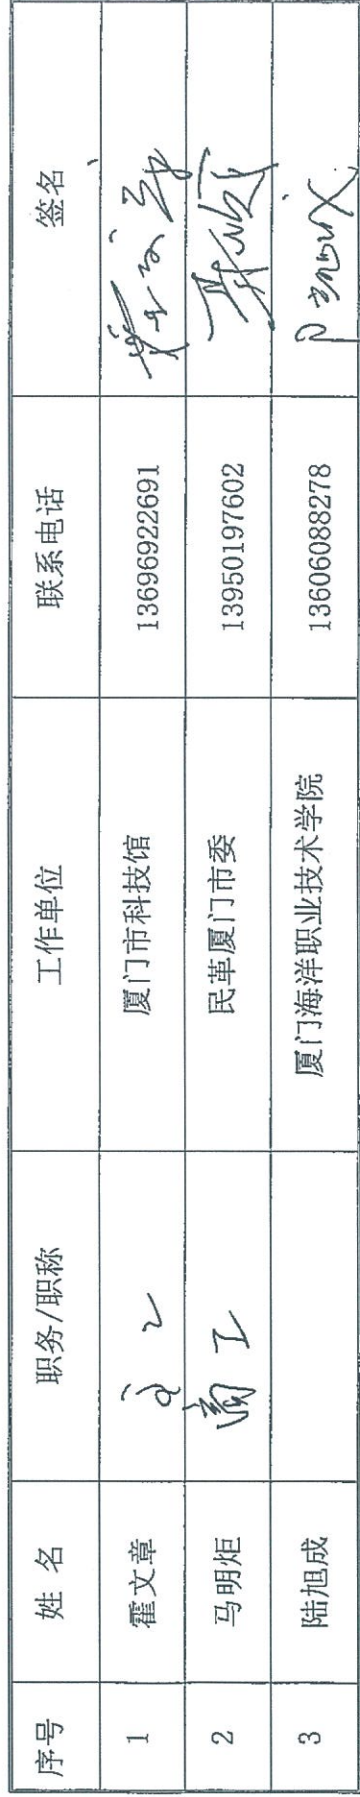 序号 姓 名 职务/职称 工作单位 联系电话 签名
1 霍文章 高工 厦门市科技馆 13696922691
2 马明炬 高工 民革厦门市委 13950197602
3 陆旭成 厦门海洋职业技术学院 13606088278 陆旭成